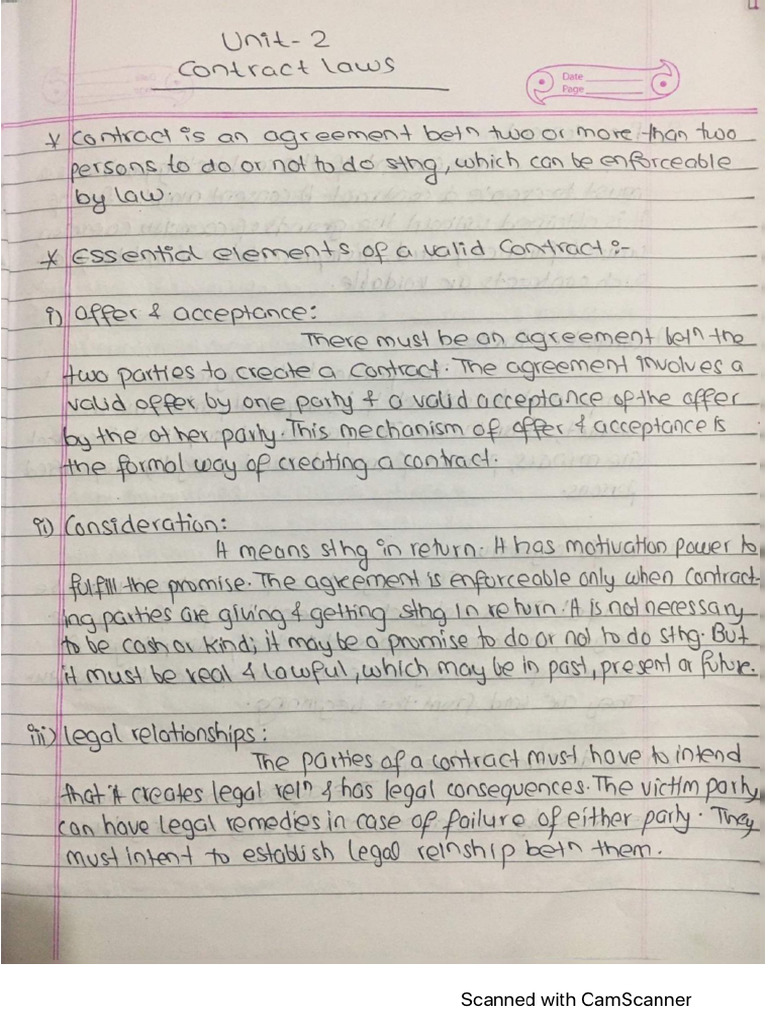 Unit-2
Contract laws
Date
Page
* Contract is an agreement betn two or more than two
persons to do or not to do sthg, which can be enforceable
by law.
* Essential elements of a valid Contract :-
i) Offer & acceptance:
There must be an agreement betn the
two parties to create a contract. The agreement involves a
valid offer by one party & a valid acceptance of the offer
by the other party. This mechanism of offer & acceptance is
the formal way of creating a contract.
ii) Consideration:
It means sthg in return. It has motivation power to
fulfill the promise. The agreement is enforceable only when contract-
ing parties are giving & getting sthg in return. It is not necessary
to be cash or kind; it may be a promise to do or not to do sthg. But
it must be real & lawful, which may be in past, present or future.
iii) legal relationships:
The parties of a contract must have to intend
that it creates legal reln & has legal consequences. The victim party
can have legal remedies in case of failure of either party. They
must intent to establish legal relnship betn them.
Scanned with CamScanner